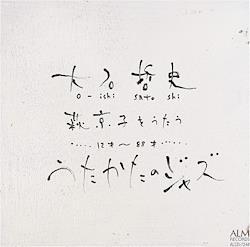 大石哲史
o-ishi sato shi
萩京子をうたう
……12才～88才……
うたかたのジャズ
ALM
RECORDS
ALCD-7249